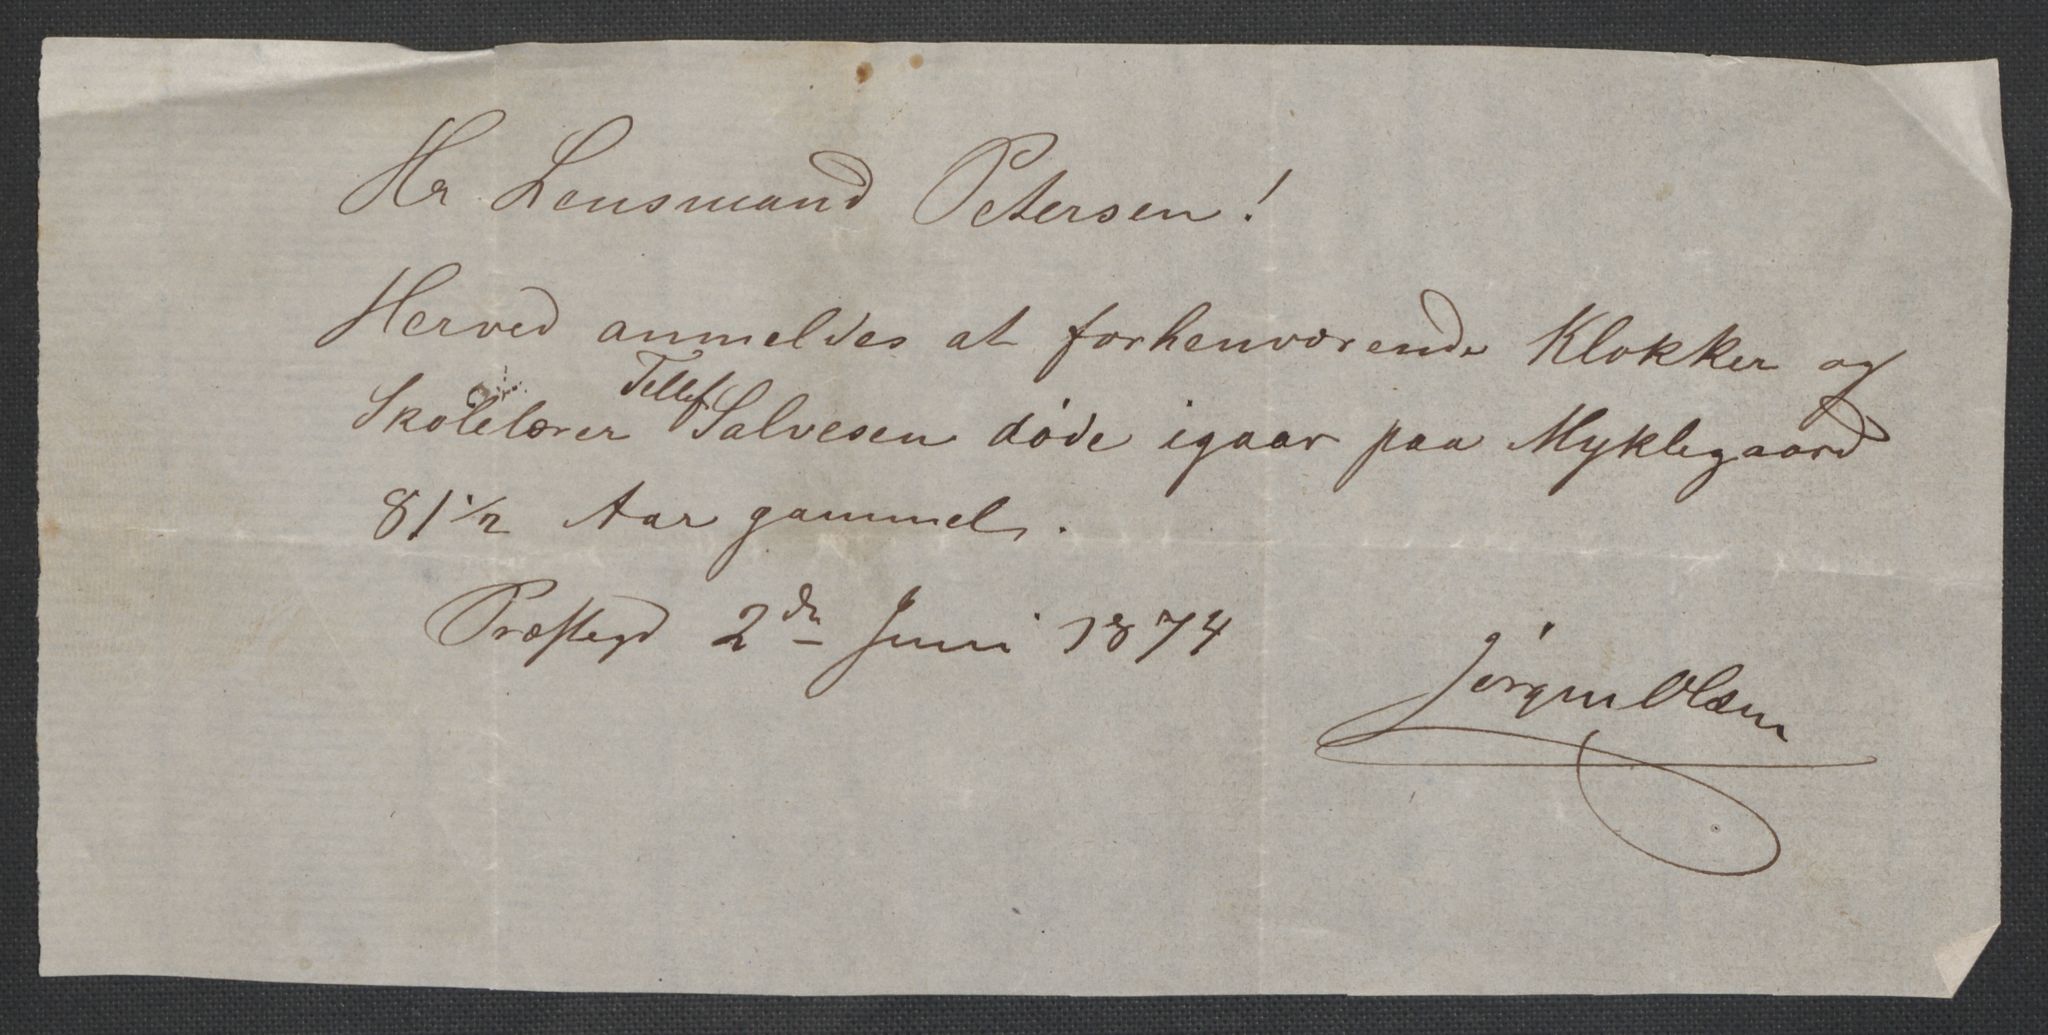 Hr Lensmand Petersen!
Herved anmeldes at forhenværende Klokker og
Skolelærer Tellef Salvesen døde igaar paa Myklegaard
81 1/2 Aar gammel.
Præstegd 2den Juni 1874
Jørgen Olsen